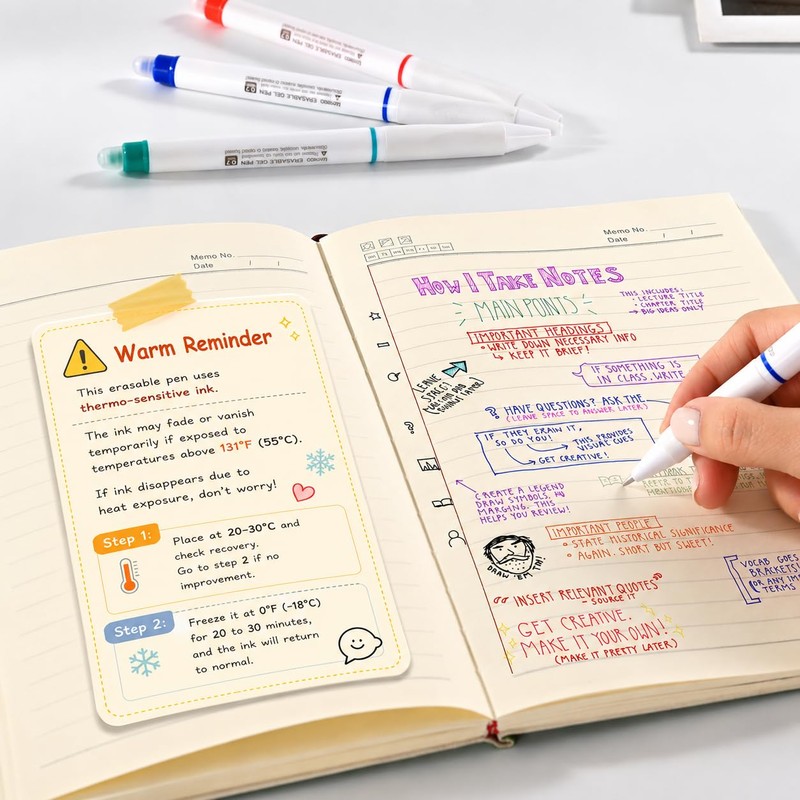 ERASABLE GEL PEN 0.7
ERASABLE GEL PEN 0.7
ERASABLE GEL PEN 0.7
Memo No.
Date / /
Warm Reminder
This erasable pen uses
thermo-sensitive ink.
The ink may fade or vanish
temporarily if exposed to
temperatures above 131°F (55°C).
If ink disappears due to
heat exposure, don't worry!
Step 1:
Place at 20-30°C and
check recovery.
Go to step 2 if no
improvement.
Step 2:
Freeze it at 0°F (-18°C)
for 20 to 30 minutes,
and the ink will return
to normal.
Memo No.
Date / /
HOW I TAKE NOTES
MAIN POINTS
THIS INCLUDES:
· LECTURE TITLE
· CHAPTER TITLE
→ BIG IDEAS ONLY
IMPORTANT HEADINGS
• WRITE DOWN NECESSARY INFO
↳ KEEP IT BRIEF!
LEAVE
SPACE!
IF SOMETHING IS
IN CLASS, WRITE
? HAVE QUESTIONS? ASK THE
(LEAVE SPACE TO ANSWER LATER)
IF THEY
SO DO YOU!
THIS PROVIDES
VISUAL CUES
GET CREATIVE!
CREATE A LEGEND
DRAW SYMBOLS,
MARGINS. THIS
HELPS YOU REVIEW!
REFER TO
IMPORTANT PEOPLE
• STATE HISTORICAL SIGNIFICANCE
• AGAIN, SHORT BUT SWEET!
DRAW 'EM IN!
VOCAB GOES
BRACKETS!
OR ANY IM
TERMS
" INSERT RELEVANT QUOTES"
- SOURCE
GET CREATIVE.
MAKE IT YOUR OWN!
(MAKE IT PRETTY LATER)